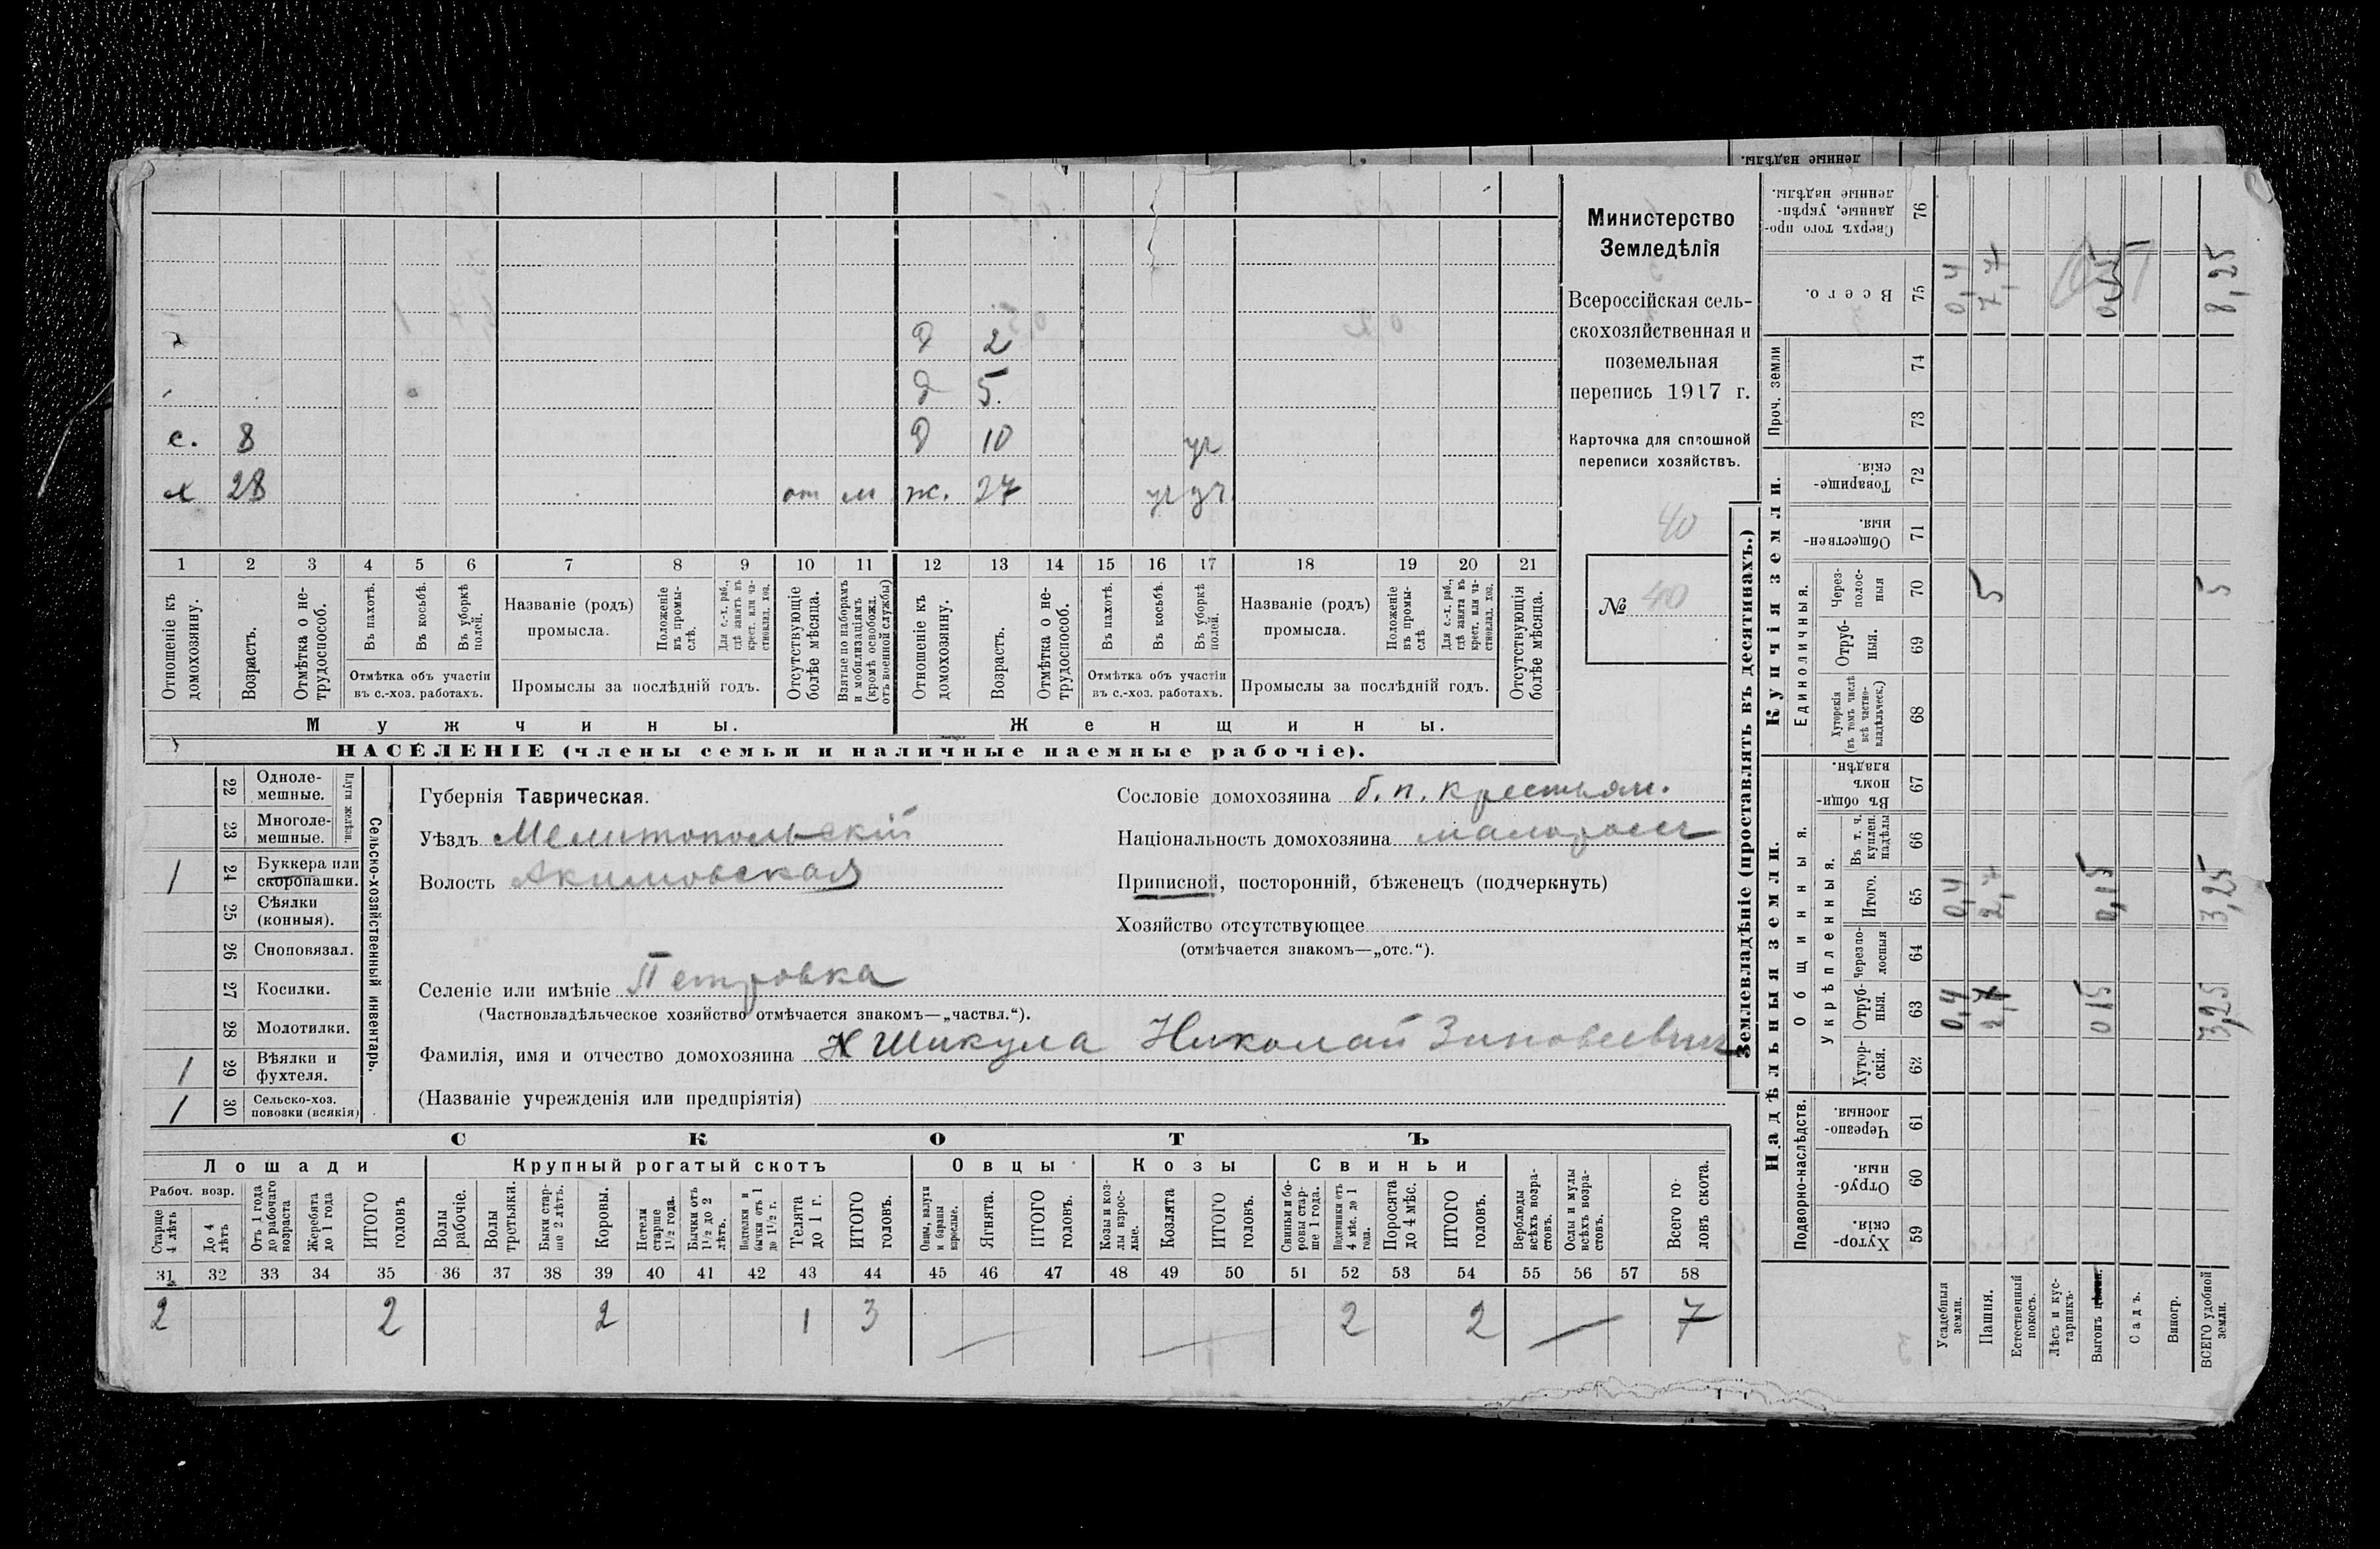 д 2
д 5.
с. 8 д 10 уч
х 28 от м ж. 27 уч уч
1 2 3 4 5 6 7 8 9 10 11 12 13 14 15 16 17 18 19 20 21
Отношеніе къ домохозяину.
Возрастъ.
Отмѣтка о нетрудоспособ.
Въ пахотѣ.
Въ косьбѣ.
Въ уборкѣ полей.
Отмѣтка объ участіи въ с.-хоз. работахъ.
Названіе (родъ) промысла.
Положеніе въ промыслѣ.
Для с.-х. раб., гдѣ занятъ въ крест. или частновлад. хоз.
Промыслы за послѣдній годъ.
Отсутствующіе болѣе мѣсяца.
Взятые по наборамъ и мобилизаціямъ (кромѣ освобожд. отъ военной службы)
Отношеніе къ домохозяину.
Возрастъ.
Отмѣтка о нетрудоспособ.
Въ пахотѣ.
Въ косьбѣ.
Въ уборкѣ полей.
Отмѣтка объ участіи въ с.-хоз. работахъ.
Названіе (родъ) промысла.
Положеніе въ промыслѣ
Для с.-х. раб., гдѣ занята въ крест. или частновлад. хоз.
Промыслы за послѣдній годъ.
Отсутствующія болѣе мѣсяца.
Мужчины. Женщины.
НАСЕЛЕНІЕ (члены семьи и наличные наемные рабочіе).
Министерство
Земледѣлія
Всероссійская сель-
скохозяйственная и
поземельная
перепись 1917 г.
Карточка для сплошной
переписи хозяйствъ.
40
№ 40
22 Одноле-мешные.
23 Многоле-мешные.
Плуги желѣзн.
1 24 Буккера или скоропашки.
25 Сѣялки (конныя).
26 Сноповязал.
27 Косилки.
28 Молотилки.
1 29 Вѣялки и фухтеля.
1 30 Сельско-хоз. повозки (всякія)
Сельско-хозяйственный инвентарь.
Губернія Таврическая.
Уѣздъ Мелитопольскій
Волость Акимовская
Сословіе домохозяина б. п. крестьян.
Національность домохозяина малоросс
Приписной, посторонній, бѣженецъ (подчеркнуть)
Хозяйство отсутствующее
(отмѣчается знакомъ—„отс.“).
Селеніе или имѣніе Петровка
(Частновладѣльческое хозяйство отмѣчается знакомъ—„частвл.“).
Фамилія, имя и отчество домохозяина Шикула Николай Зиновеевич
(Названіе учрежденія или предпріятія)
СКОТЪ
Лошади Крупный рогатый скотъ Овцы Козы Свиньи
Рабоч. возр.
Старше 4 лѣтъ
До 4 лѣтъ
Отъ 1 года до рабочаго возраста
Жеребята до 1 года
ИТОГО головъ
Волы рабочіе.
Волы третьяки.
Быки старше 2 лѣтъ.
Коровы.
Нетели старше 1½ года.
Бычки отъ 1½ до 2 лѣтъ.
Подтелки и бычки отъ 1 до 1½ г.
Телята до 1 г.
ИТОГО головъ.
Овцы, валухи и бараны взрослые.
Ягнята.
ИТОГО головъ.
Козы и козлы взрослые.
Козлята
ИТОГО головъ.
Свиньи и боровы старше 1 года.
Подсвинки отъ 4 мѣс. до 1 года.
Поросята до 4 мѣс.
ИТОГО головъ.
Верблюды всѣхъ возрастовъ.
Ослы и мулы всѣхъ возрастовъ.
Всего головъ скота.
31 32 33 34 35 36 37 38 39 40 41 42 43 44 45 46 47 48 49 50 51 52 53 54 55 56 57 58
2 2 2 1 3 2 2 7
Землевладѣніе (проставлять въ десятинахъ.)
Надѣльныя земли. Купчія земли.
Подворно-наслѣдств. Общинныя. Укрѣпленныя. Единоличныя. Проч. земли
Хуторскія. 59
Отрубныя. 60
Черезполосныя. 61
Хуторскія. 62
Отрубныя. 63 0,4 2,7 0,15 3,25
Черезполосныя 64
Итого. 65 0,4 2,7 0,15 3,25
Въ т. ч. куплен. надѣлы 66
Въ общинномъ владѣн. 67
Хуторскія (въ томъ числѣ всѣ частновладѣльческ.) 68
Отрубныя. 69
Черезполосныя 70 5 5
Общественныя. 71
Товарищескія. 72
73
74
Всего. 75 0,4 7,7 0,15 8,25
Сверхъ того проданные, укрѣпленные надѣлы. 76
Усадебныя земли.
Пашня.
Естественный покосъ.
Лѣсъ и кустарникъ.
Выгонъ
Садъ.
Виногр.
ВСЕГО удобной земли.
ленные надѣлы.